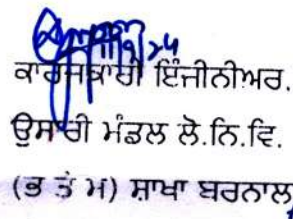 ਕਾਰਜਕਾਰੀ ਇੰਜੀਨੀਅਰ.
ਉਸਾਰੀ ਮੰਡਲ ਲੋ.ਨਿ.ਵਿ.
(ਭ ਤੇ ਮ) ਸ਼ਾਖਾ ਬਰਨਾਲ